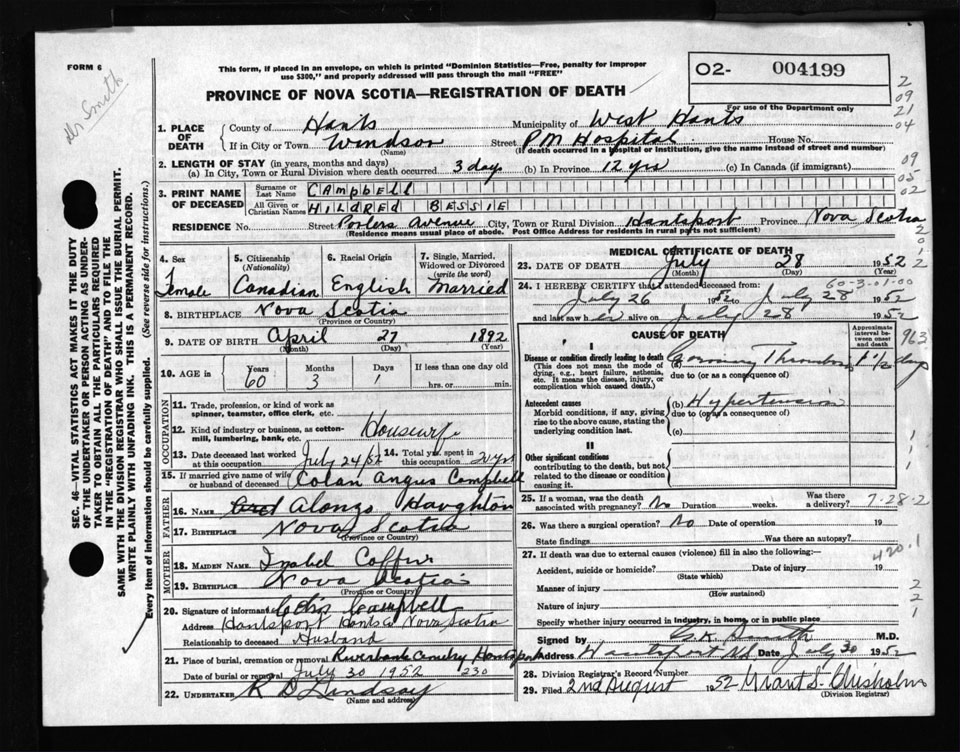 FORM 6
Mr Smith
This form, if placed in an envelope, on which is printed "Dominion Statistics—Free, penalty for improper
use $300," and properly addressed will pass through the mail "FREE"
PROVINCE OF NOVA SCOTIA—REGISTRATION OF DEATH
02- 004199
For use of the Department only
2
09
21
04
09
05
02
1. PLACE OF DEATH
County of Hants Municipality of West Hants
If in City or Town Windsor (Name) Street PM Hospital House No.
(If death occurred in a hospital or institution, give the name instead of street and number)
2. LENGTH OF STAY (in years, months and days)
(a) In City, Town or Rural Division where death occurred 3 day (b) In Province 12 yrs (c) In Canada (if immigrant)
3. PRINT NAME OF DECEASED
Surname or Last Name CAMPBELL
All Given or Christian Names HILDRED BESSIE
RESIDENCE No. Street Avenue City, Town or Rural Division Hantsport Province Nova Scotia
(Residence means usual place of abode. Post Office Address for residents in rural parts not sufficient)
SEC. 46—VITAL STATISTICS ACT MAKES IT THE DUTY
OF THE UNDERTAKER OR PERSON ACTING AS UNDER-
TAKER TO OBTAIN ALL THE PARTICULARS REQUIRED
IN THE "REGISTRATION OF DEATH" AND TO FILE THE
SAME WITH THE DIVISION REGISTRAR WHO SHALL ISSUE THE BURIAL PERMIT.
WRITE PLAINLY WITH UNFADING INK. THIS IS A PERMANENT RECORD.
Every item of information should be carefully supplied. (See reverse side for instructions.)
4. Sex
Female
5. Citizenship (Nationality)
Canadian
6. Racial Origin
English
7. Single, Married, Widowed or Divorced (write the word)
Married
8. BIRTHPLACE Nova Scotia
(Province or Country)
9. DATE OF BIRTH April 27 1892
(Month) (Day) (Year)
10. AGE in Years 60 Months 3 Days 1 If less than one day old
hrs. or min.
OCCUPATION
11. Trade, profession, or kind of work as spinner, teamster, office clerk, etc.
12. Kind of industry or business, as cotton-mill, lumbering, bank, etc.
Housewife
13. Date deceased last worked at this occupation July 24/52
14. Total yrs. spent in this occupation 20 yrs
15. If married give name of wife or husband of deceased Colan Angus Campbell
FATHER
16. NAME Alonzo Haughton
17. BIRTHPLACE Nova Scotia
(Province or Country)
MOTHER
18. MAIDEN NAME Isabel Coffin
19. BIRTHPLACE Nova Scotia
(Province or Country)
20. Signature of informant Campbell
Address Hantsport Hants Co Nova Scotia
Relationship to deceased Husband
21. Place of burial, cremation or removal Riverbank Cemetry Hantsport
Date of burial or removal July 30 1952 230
22. UNDERTAKER R D Lindsay
(Name and address)
MEDICAL CERTIFICATE OF DEATH
23. DATE OF DEATH July 28 1952
(Month) (Day) (Year)
24. I HEREBY CERTIFY that I attended deceased from:
60-3-01-00
July 26 1952 to July 28 1952
and last saw her alive on July 28 1952
CAUSE OF DEATH
Approximate interval between onset and death
963
I
Disease or condition directly leading to death
(This does not mean the mode of dying, e.g., heart failure, asthenia, etc. It means the disease, injury, or complication which caused death.)
(a) 1 1/2 days
due to (or as a consequence of)
Antecedent causes
Morbid conditions, if any, giving rise to the above cause, stating the underlying condition last.
(b) Hypertension
due to (or as a consequence of)
(c)
II
Other significant conditions
contributing to the death, but not related to the disease or condition causing it.
25. If a woman, was the death associated with pregnancy? No Duration weeks. Was there a delivery?
7-28-2
26. Was there a surgical operation? No Date of operation 19
State findings Was there an autopsy?
27. If death was due to external causes (violence) fill in also the following:—
420.1
Accident, suicide or homicide? Date of injury 19
(State which)
Manner of injury
(How sustained)
Nature of injury
Specify whether injury occurred in industry, in home, or in public place
Signed by G.K. Smith M.D.
Address Hantsport NS Date July 30 1952
28. Division Registrar's Record Number
29. Filed 2nd August 1952 Grant S. Chisholm
(Division Registrar)